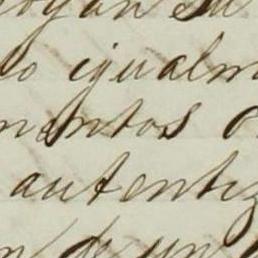 oyan su
o igualm
mentos o
autentiz
n de un